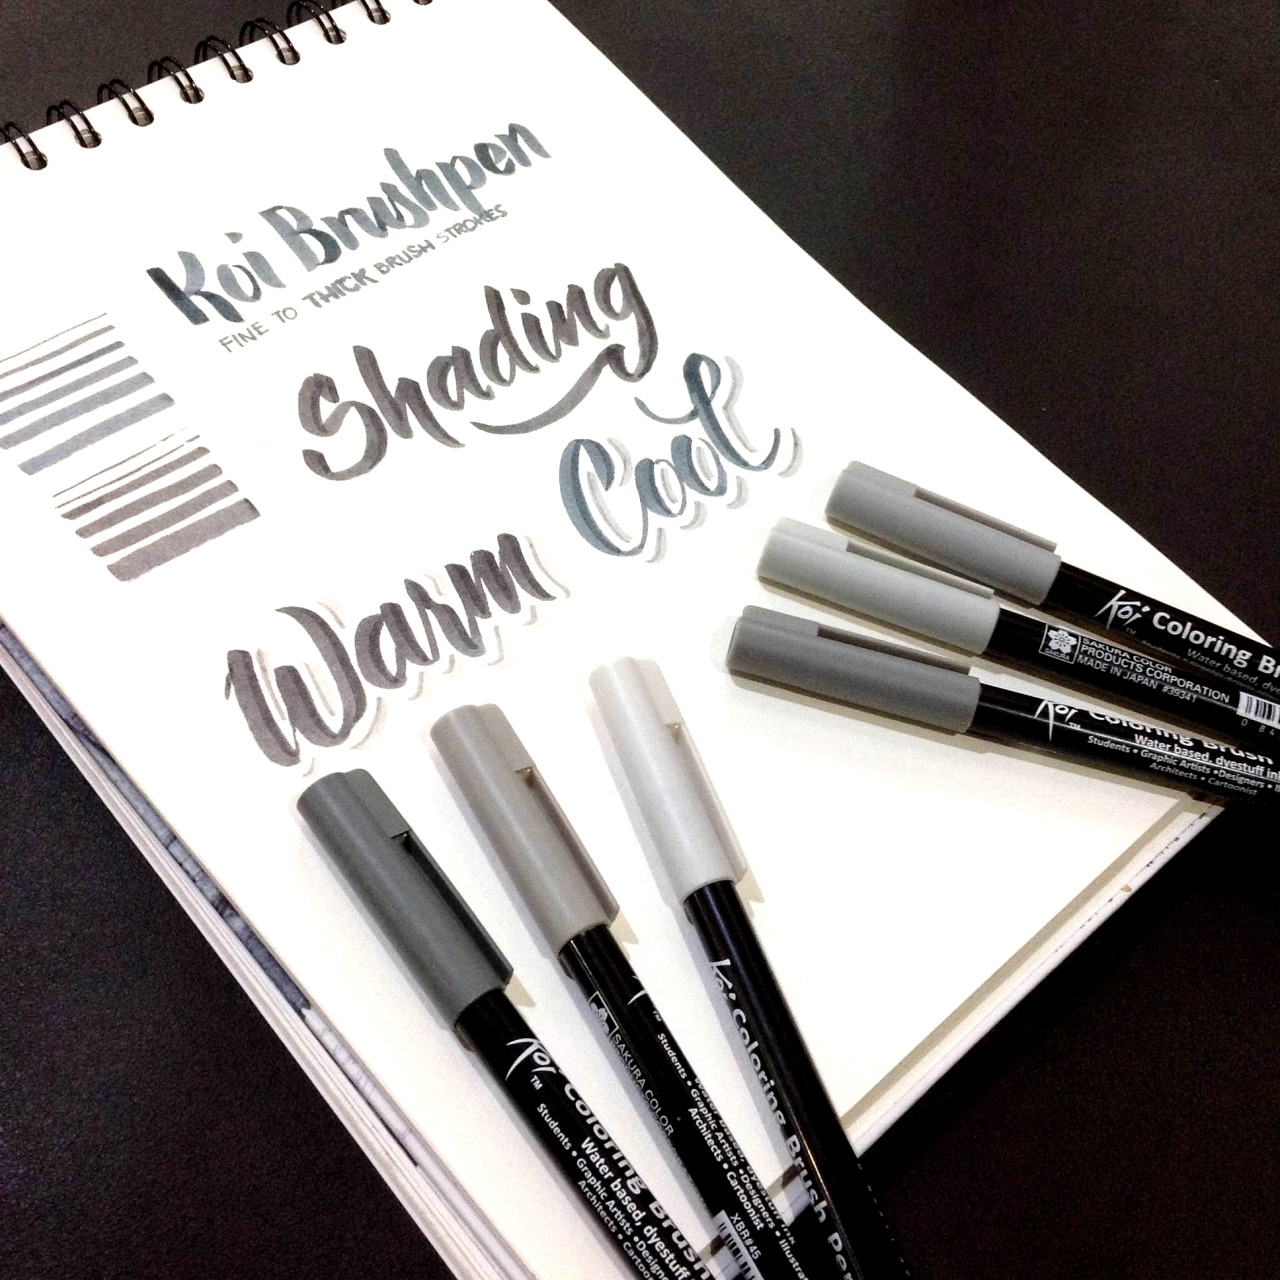 Koi Brushpen
FINE TO THICK BRUSH STROKES
Shading
Cool
Warm
Koi Coloring Br
Water based, dye
SAKURA
SAKURA COLOR
PRODUCTS CORPORATION
MADE IN JAPAN #39341
0 84
Koi Coloring Brush
TM
Water based, dyestuff ink
Students • Graphic Artists • Designers •
Architects • Cartoonist
Koi Coloring Brush
TM
Water based, dyestuff
Students • Graphic Artists • Design
Architects • Cartoonist
SAKURA COLOR
TM
Students •
Koi Coloring Brush Pen
Water based, dyestuff ink
Graphic Artists • Designers • Illustra
Architects • Cartoonist
XBR#45